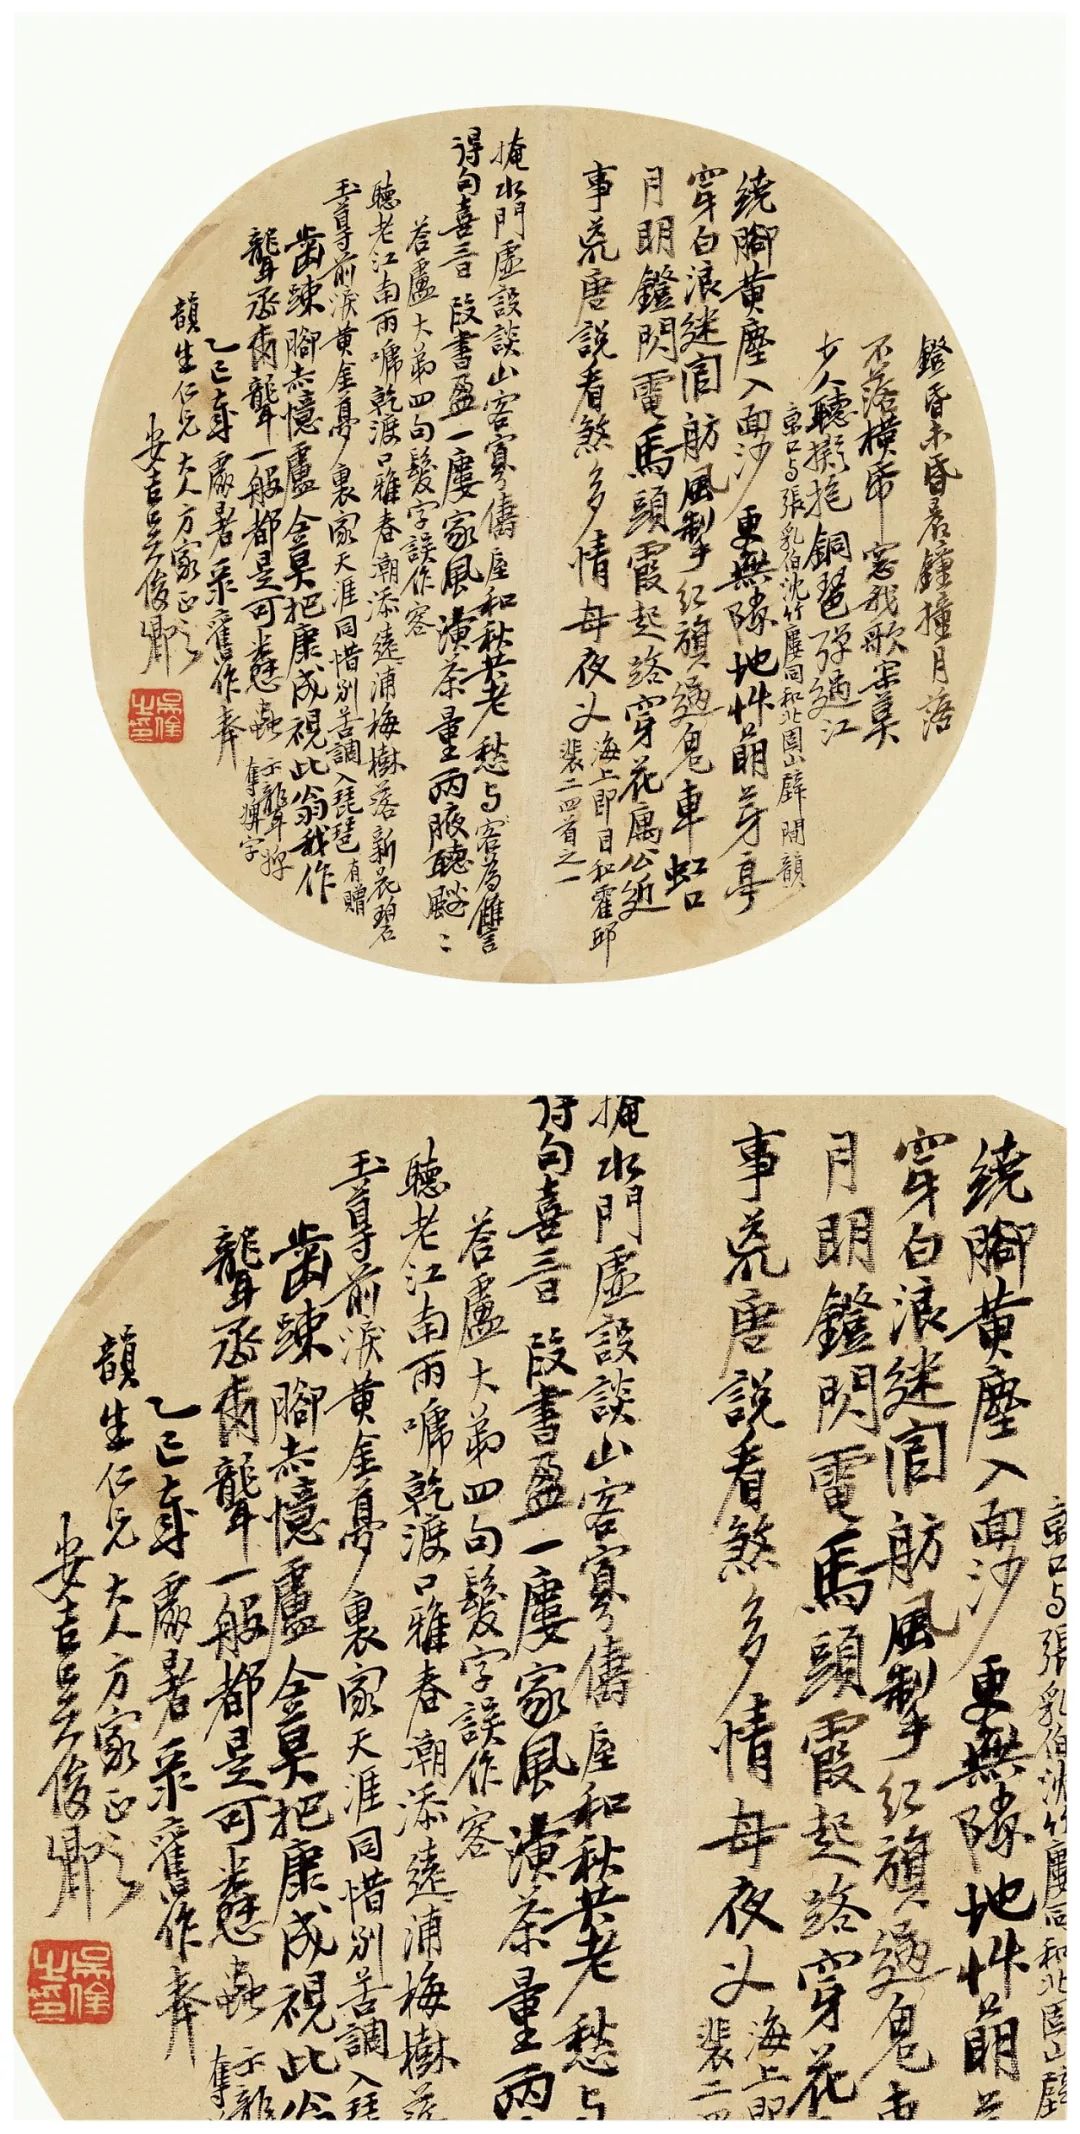 鐙昏未昏君鐘撞月落
不落橫帘窓我歌寀莫
少人聽撥抱銅琶彈過江
京口与張乳伯沈竹塵同和北固山壁間韻
繞腳黃塵入面沙更無隙地艸萌芽亭
穿白浪迷官舫風掣紅旗過鬼車虹口
月明鐙閃電馬頭霞起路穿花属公近
事荒唐說看煞多情母夜叉
海上即目和霍邱
裴二四首之一
掩水門虛設談山客寡儔屋和秋共老愁与客為讐
得句喜三百段書盈一廔家風演茶量兩腋聽颼〻
答盧大弟四句髮字誤作客
聽老江南雨嘑乾渡口雅春潮添遠浦梅樹落新花碧
玉尊前淚黃金夢裏家天涯同惜別苦調入琵琶
有贈
齒踈腳赤憶盧仝莫把康成視此翁我作
聾丞甭聾一般都是可憐蟲
下聾
奪字
韻生仁兄大人方家正之
乙巳處暑录舊作奉
安吉吴俊卿
吳俊之印
掩水門虛設談山客寡儔屋和秋共老愁与
得句喜三百段書盈一廔家風演茶量兩
答盧大弟四句髮字誤作客
聽老江南雨嘑乾渡口雅春潮添遠浦梅樹落
玉尊前淚黃金夢裏家天涯同惜別苦調入琵
齒踈腳赤憶盧仝莫把康成視此翁
聾丞甭聾一般都是可憐蟲
韻生仁兄大人方家正之
乙巳處暑录舊作奉
安吉吴俊卿
吳俊之印
京口与張乳伯沈竹塵同和北固山壁
繞腳黃塵入面沙更無隙地艸萌
穿白浪迷官舫風掣紅旗過鬼車
月明鐙閃電馬頭霞起路穿花
事荒唐說看煞多情母夜叉
海上即
裴二四